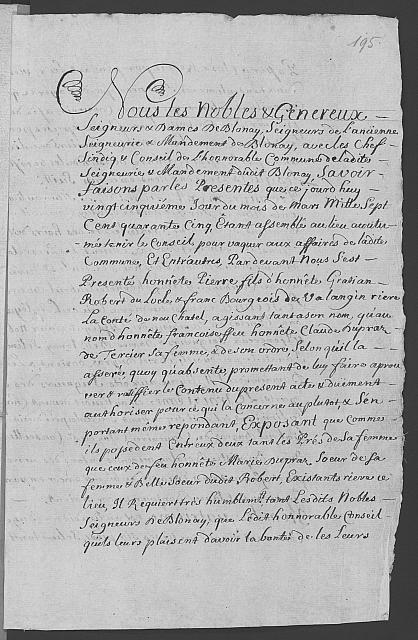 195.
Nous les Nobles & Généreux
Seigneurs & Dames De Blonay, Seigneurs de L'ancienne
Seigneurie & Mandement de Blonay, avec les Chef
Sindiq & Conseil de L'honnorable Commune de ladite
Seigneurie & Mandement dudit Blonay, Savoir
faisons par les Presentes que ce jourd'huy
vingt cinquième Jour du mois de Mars Mille Sept
Cent quarante Cinq, Etant assemblé au lieu accoutu-
mé tenir le Conseil pour vaquer aux affaires de ladite
Commune, Et Entrautres, Pardevant Nous S'est
Presenté honnête Pierre fils d'honnête Gratian
Robert du Locle, & franc Bourgeois de Valangin riere
La Conté de neuchatel, agissant tant a son nom, qu'au
nom d'honnête françoise ffeu honnête Claude Dupraz
de Tercier sa femme, & de son ordre, Selon qu'il l'a
asseré, quoy qu'absente, promettant de luy faire aprou
ver & ratiffier le Contenu du present acte & duëment
authoriser pour ce qui la Concerne au plutot, & S'en
portant même repondant, Exposant que comme
ils possèdent Entr'eux deux tant les Prés de sa femme
que ceux de feu honnête Marie Dupraz Soeur de sa
femme & Belle Soeur dudit Robert, Existants riere ce
lieu, Il Requiert très humblemt. tant Lesdits Nobles
Seigneurs De Blonay, que Ledit honnorable Conseil
qu'ils leurs plaisent d'avoir la bonté de les Leurs